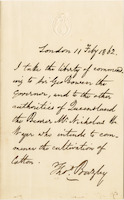 London 11 Feby 1862.
I take the liberty of commend
ing to Sir Geo Bowen the
Governor, and to the other
authorities of Queensland
the Bearer Mr. Nicholas
who intends to com
mence the cultivation of
Cotton.
Thos. Bazley